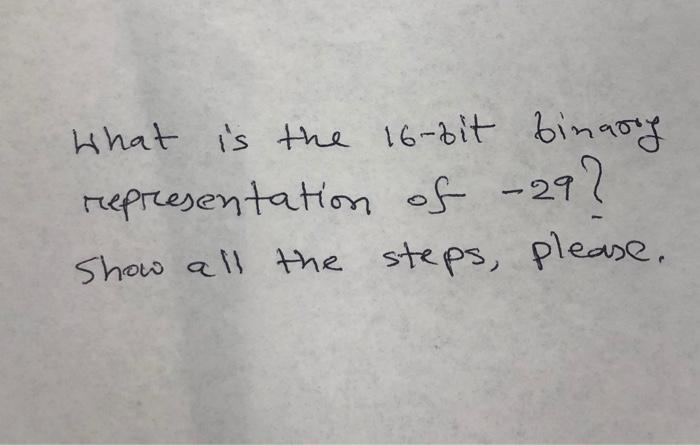 What is the 16-bit binary
representation of -29?
Show all the steps, please.